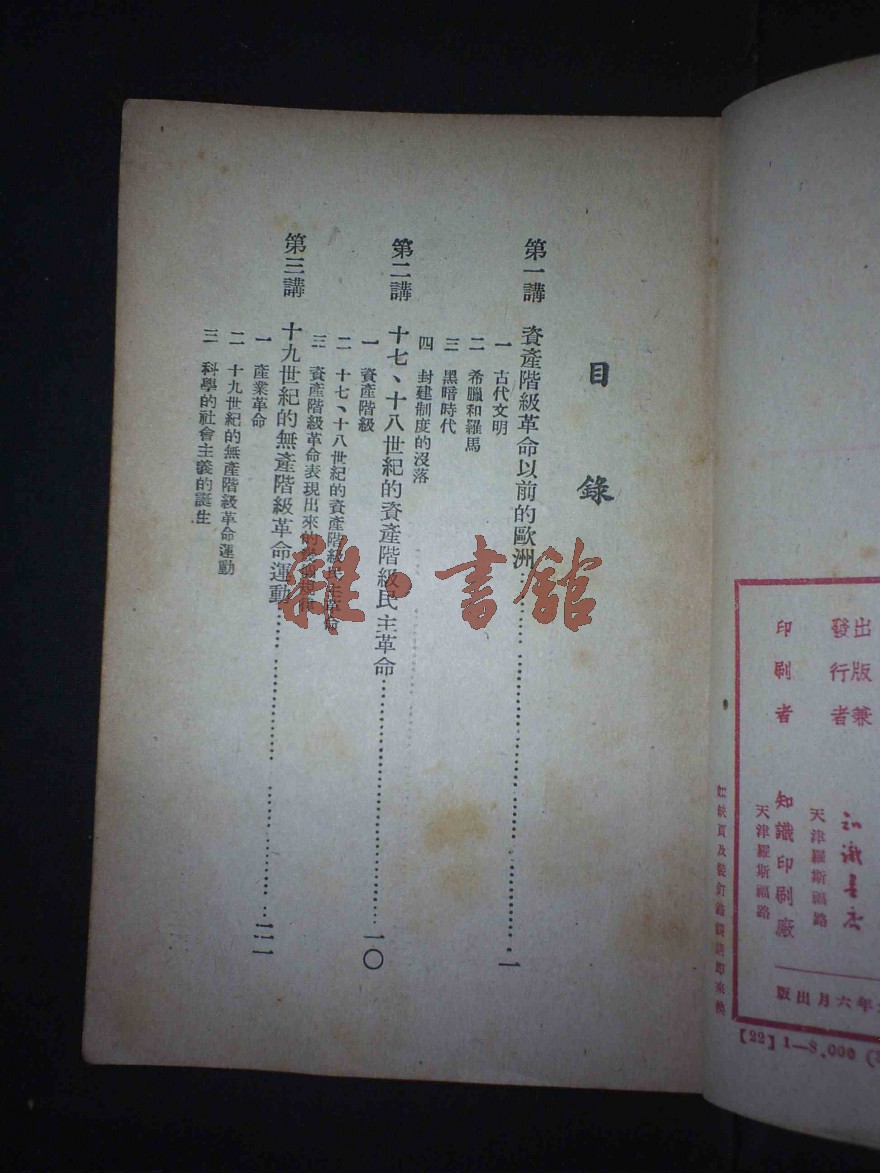 目 錄
第一講 資產階級革命以前的歐洲……………………一
一 古代文明
二 希臘和羅馬
三 黑暗時代
四 封建制度的沒落
第二講 十七、十八世紀的資產階級民主革命……………………一〇
一 資產階級
二 十七、十八世紀的資產階級民主革命
三 資產階級革命表現出來的
第三講 十九世紀的無產階級革命運動……………………二一
一 產業革命
二 十九世紀的無產階級革命運動
三 科學的社會主義的誕生
雜·書館
出版兼
發行者
知識書店
天津羅斯福路
印刷者 知識印刷廠
天津羅斯福路
年六月出版
[22] 1—8,000